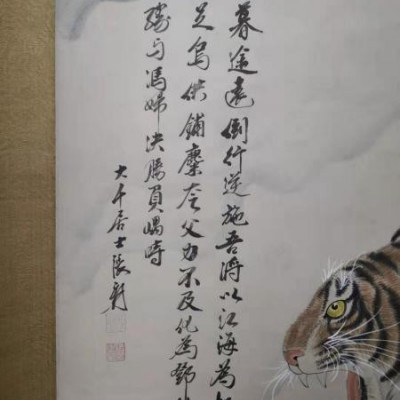 暮途遠倒行逆施吾將以江海為
足烏供餔糜夸父力不及化為鄧
与馮婦決勝負嵎時
大千居士張爰